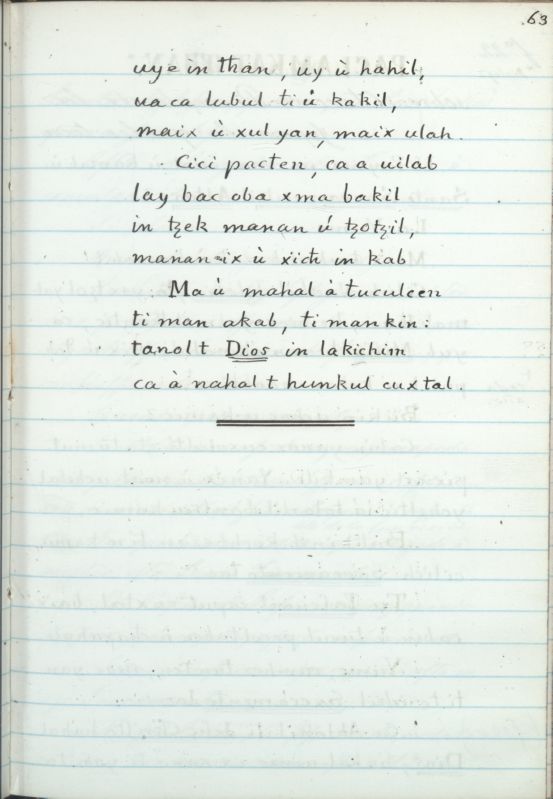 63
uye in than, uy ù hahil,
ua ca lubul ti ù kakil,
maix ù xul yan, maix ulah.
Cici pacten, ca a uilab
lay bac oba xma bakil
in tzek manan ú tzotzil,
manan-ix ù xich in kab
Ma ù mahal à tuculcen
ti man akab, ti man kin:
tanol t Dios in lakichim
ca à nahal t hunkul cuxtal.